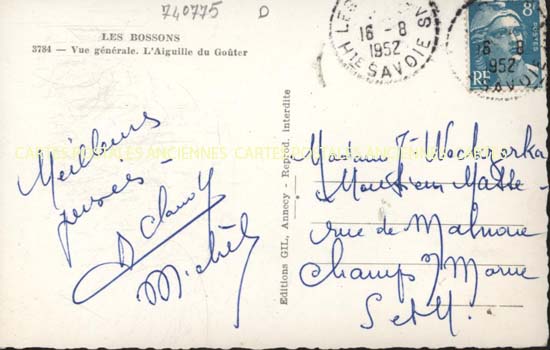 740775 D
LES BOSSONS
3784 — Vue générale. L'Aiguille du Goûter
16 - 8
1952
HTE SAVOIE
8F
POSTES
RF
16 8
1952
SAVOIE
CARTES POSTALES ANCIENNES CARTES POSTALES ANCIENNES CARTES POSTALES ANCIENNES
Meilleures
pensées -
Michèle
Editions GIL, Annecy - Reprod. interdite
Madame
& Monsieur
rue de Malnoue
Champs s/ Marne
S et M.